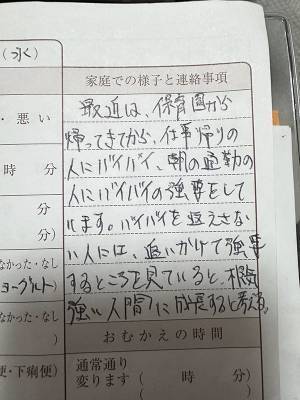 (水)
家庭での様子と連絡事項
・悪い
最近は、保育園から
帰ってきてから、仕事帰りの
時 分
人にバイバイ、朝の通勤の
人にバイバイの強要をして
分
います。バイバイを返えさな
分
い人には、追いかけて強要
なかった・なし
するところを見ていると、根気
ヨーグルト)
強い人間に成長すると考える。
なかった・なし
おむかえの時間
通常通り
便・下痢便)
変ります ( 時 分 )